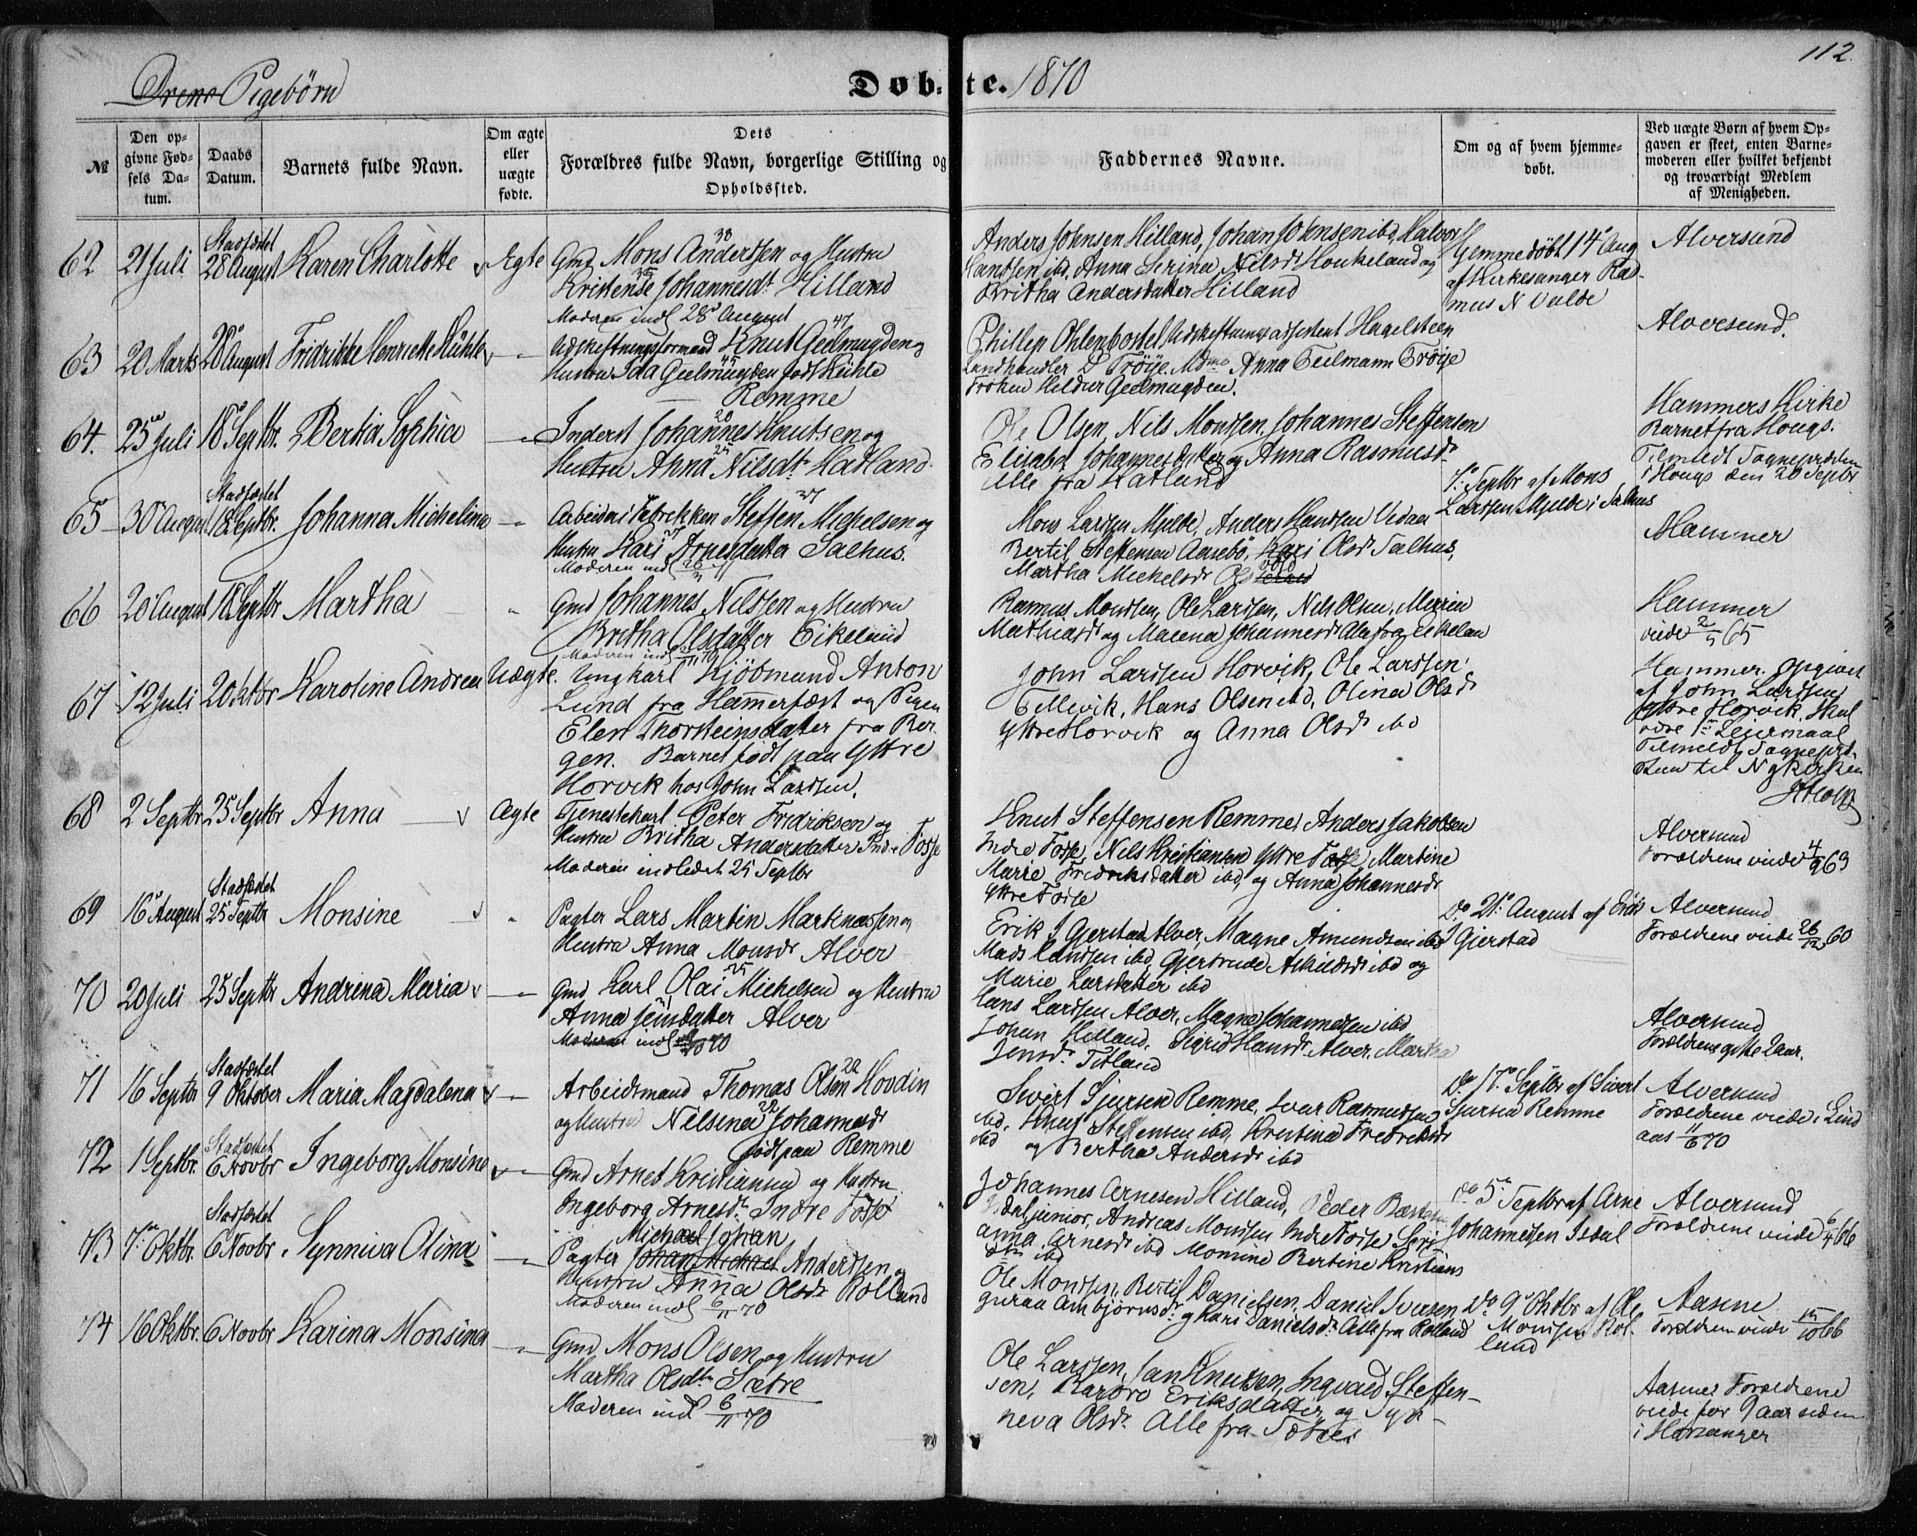 112.
Drenge Pigebørn
Døbte. 1870
№
Den opgivne Fødsels Datum.
Daabs Datum.
Barnets fulde Navn.
Om ægte eller uægte fødte.
Dets Forældres fulde Navn, borgerlige Stilling og Opholdssted.
Faddernes Navne.
Om og af hvem hjemmedøbt.
Ved uægte Børn af hvem Opgaven er skeet, enten Barnemoderen eller hvilket bekjendt og troværdigt Medlem af Menigheden.
62 21 Juli Stadfæstet 28 August Karen Charlotte Egte
Gmd Mons Anderssen og Hustru
Kristense Johannesdt Hilland
Moderen indl 28 August
Anders Johnsen Hilland, Johan Johnsen ibd, Halvor
Hansen ibd, Anna Serina Nilsdt Houkeland og
Britha Andersdatter Hilland
Hjemmedøbt 14 Aug
af Kirkesanger Rasmus N Valde
Alversund
63 20 Marts 28 August Fridrikke Henriette Kühle
Udskiftningsformand Knut Geelmuyden og
Hustru Ida Geelmuyden født Kühle
Remme
Phillip Ohlenbostel Udskiftningsassistent Hagelsteen
Landhandler P Trøye, Mdme Anna Teilmann Trøye
Frøken Heldur Geelmuyden.
Alversund.
64. 25 Juli 18 Septbr. Bertha Sophia
Inderst Johannes Knutsen og
Hustru Anna Nilsdtr Hatland.
Ole Olsen, Nils Monssen, Johannes Steffensen
Elisabet Johannesdtr og Anna Rasmusdr
Alle fra Hatland
Hammers Kirke
Barnet fra Hougs.
Tilmeldt Sognepræsten
i Hougs den 20 Septbr
65 30 August Stadfæstet 18 Septbr. Johanna Michelina
Arbeider i Fabrikken Steffen Michelsen og
Hustru Kari Arnesdatter Salhus.
Moderen indl
Mons Larsen Mjelde, Anders Hanssen Vedaa
Bertil Steffensen Aasebø, Kari Olsdr Salhus,
Martha Mickelsdr
Septbr af Mons
Larssen Mjelde i Salhus
Hammer
66 20 August 18 Septbr Martha
Gmd Johannes Nilssen og Hustru
Britha Olsdatter Eikeland
Rasmus Monssen, Ole Larssen, Nils Olsen, Maria
Mathiasdr og Malena Johannesdr Alle fra Eikelan
Hammer
viede 2/5 65
67 12 Juli 2 Oktbr Karoline Andrea Uægte.
Ungkarl Kjøbmand Anton
Lund fra Hammerfest og Pigen
Elen Thorsteinsdatter fra Bergen. Barnet født paa Yttre
Horvik hos John Larssen.
John Larssen Horvik, Ole Larssen
Tellevik, Hans Olsen ibd, Olina Olsdr
Yttre Horvik og Anna Olsdr ibd
Hammer. Opgivet
af John Larssen
Yttre Horvik. Skal
være 1ste Leiermaal
68 2 Septbr 25 Septbr Anna Ægte
Tjenestekarl Peter Fredriksen og
Hustru Britha Andersdatter Indre Fosse
Moderen indledet 25 Septbr
Knut Steffensen Remme, Anders Jakobsen
Indre Fosse, Nils Kristiansen Yttre Fosse, Martine
Marie Fredriksdatter ibd, og Anna Johannesdr
Yttre Fosse
Alversund
Forældrene viede 4/9 63
69 16 August Stadfæstet 25 Septbr Monsine
Pagter Lars Martin Marknussen og
Hustru Anna Monsdr Alver
Erik J Gjerstad Alver, Magne Amundsen ibd
Mads Hanssen ibd, Gjertrude Askildsdr ibd og
Marie Larsdatter ibd
Do 21 August af Erik
J Gjerstad
Alversund
Forældrene viede 26/12 60
70 20 Juli 25 Septbr Andrina Maria
Gmd Karl Olai Michelsen og Hustru
Anna Jensdatter Alver
Hans Larssen Alver, Magne Johannessen ibd
Johan Hilland, Sigrid Hansdr Alver, Martha
Jensdr Titland
Alversund
Forældrene gifte 2 aar.
71 16 Septbr Stadfæstet 9 Oktober Maria Magdalena
Arbeidsmand Thomas Olsen Hovdin
og Hustru Nilsina Johannesdr
født paa Remme
Sivert Sjursen Remme, Ivar Rasmussen
ibd, Knut Steffensen ibd, Kristina Fredriksdr
ibd og Bertha Andersdr ibd
Do 17 Septbr af Sivert
Sjursen Remme
Alversund
Forældrene viede i Lindaas
72 1 Septbr. Stadfæstet 6 Novbr Ingeborg Monsine
Gmd Arnes Kristiansen og Hustru
Ingeborg Arnesdr Indre Fosse
Johannes Arnesen Hilland, Peder
Isdal junior, Andreas Monssen Indre Fosse,
Anna Arnesdr ibd Monsine Bertine Kristians
dtr ibd
Do 5 Septbr af Arne
Johannessen Isdal
Alversund
Forældrene viede 6/4 66
73 7. Oktbr. Stadfæstet 6 Novbr Synniva Olina
Michael Johan
Pagter Johan Michael Anderssen og
Hustru Anna Olsdr Rolland
Moderen indl 6/11 70
Ole Monssen, Bertil Danielsen, Daniel Iversen,
Guraa Ambjørnsdr og Kari Danielsdr Alle fra Rolland
Do 9 Oktbr af Ole
Monssen Rolland
Aasene
Forældrene viede
74 16 Oktbr. 6 Novbr Karina Monsina
Gmd Mons Olsen og Hustru
Martha Olsdtr Sætre
Moderen indl 6/11 70
Ole Larssen, Jan Knutsen, Ingvald Steffensen, Barbro Eriksdatter og Synneva Olsdr Alle fra Sætre
Aasene Forældrene
viede for 9 aar siden
i Harranger